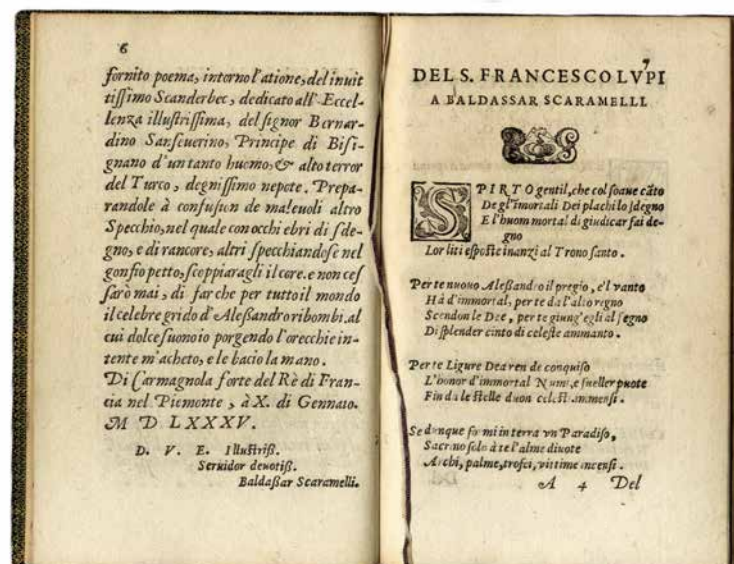 6
fornito poema, intorno l'atione, del inuit
tissimo Scanderbec, dedicato all' Eccel-
lenza illustrissima, del signor Bernar-
dino Sanseuerino, Principe di Bisi-
gnano d'un tanto huomo, & alto terror
del Turco, degnissimo nepote. Prepa-
randole à confusion de maleuoli altro
Specchio, nel quale con occhi ebri di sde-
gno, e di rancore, altri specchiandose nel
gonfio petto, scoppiaragli il core. e non ces
sarò mai, di far che per tutto il mondo
il celebre grido d'Alessandro ribombi. al
cui dolce suono io porgendo l'orecchie in-
tente m'acheto, e le bacio la mano.
Di Carmagnola forte del Rè di Fran-
cia nel Piemonte, à X. di Gennaio.
M D LXXXV.
D. V. E. Illustriß.
Seruidor deuotiß.
Baldaßar Scaramelli.
7
DEL S. FRANCESCO LVPI
A BALDASSAR SCARAMELLI.
SPIRTO gentil, che col soaue cãto
De gl'imortali Dei plachi lo sdegno
E l'huom mortal di giudicar fai de-
gno
Lor liti esposte inanzi al Trono santo.
Per te nuouo Aleßandro il pregio, e'l vanto
Hà d'immortal, per te da l'alto regno
Scendon le Dee, per te giung'egli al segno
Di splender cinto di celeste ammanto.
Per te Ligure Dea ren de conquiso
L'honor d'immortal Numi, e sueller puote
Fin da le stelle duon celesti immensi.
Se dunque formi in terra vn Paradiso,
Sacrano solo à te l'alme diuote
Archi, palme, trofei, vittime incensi.
A 4 Del